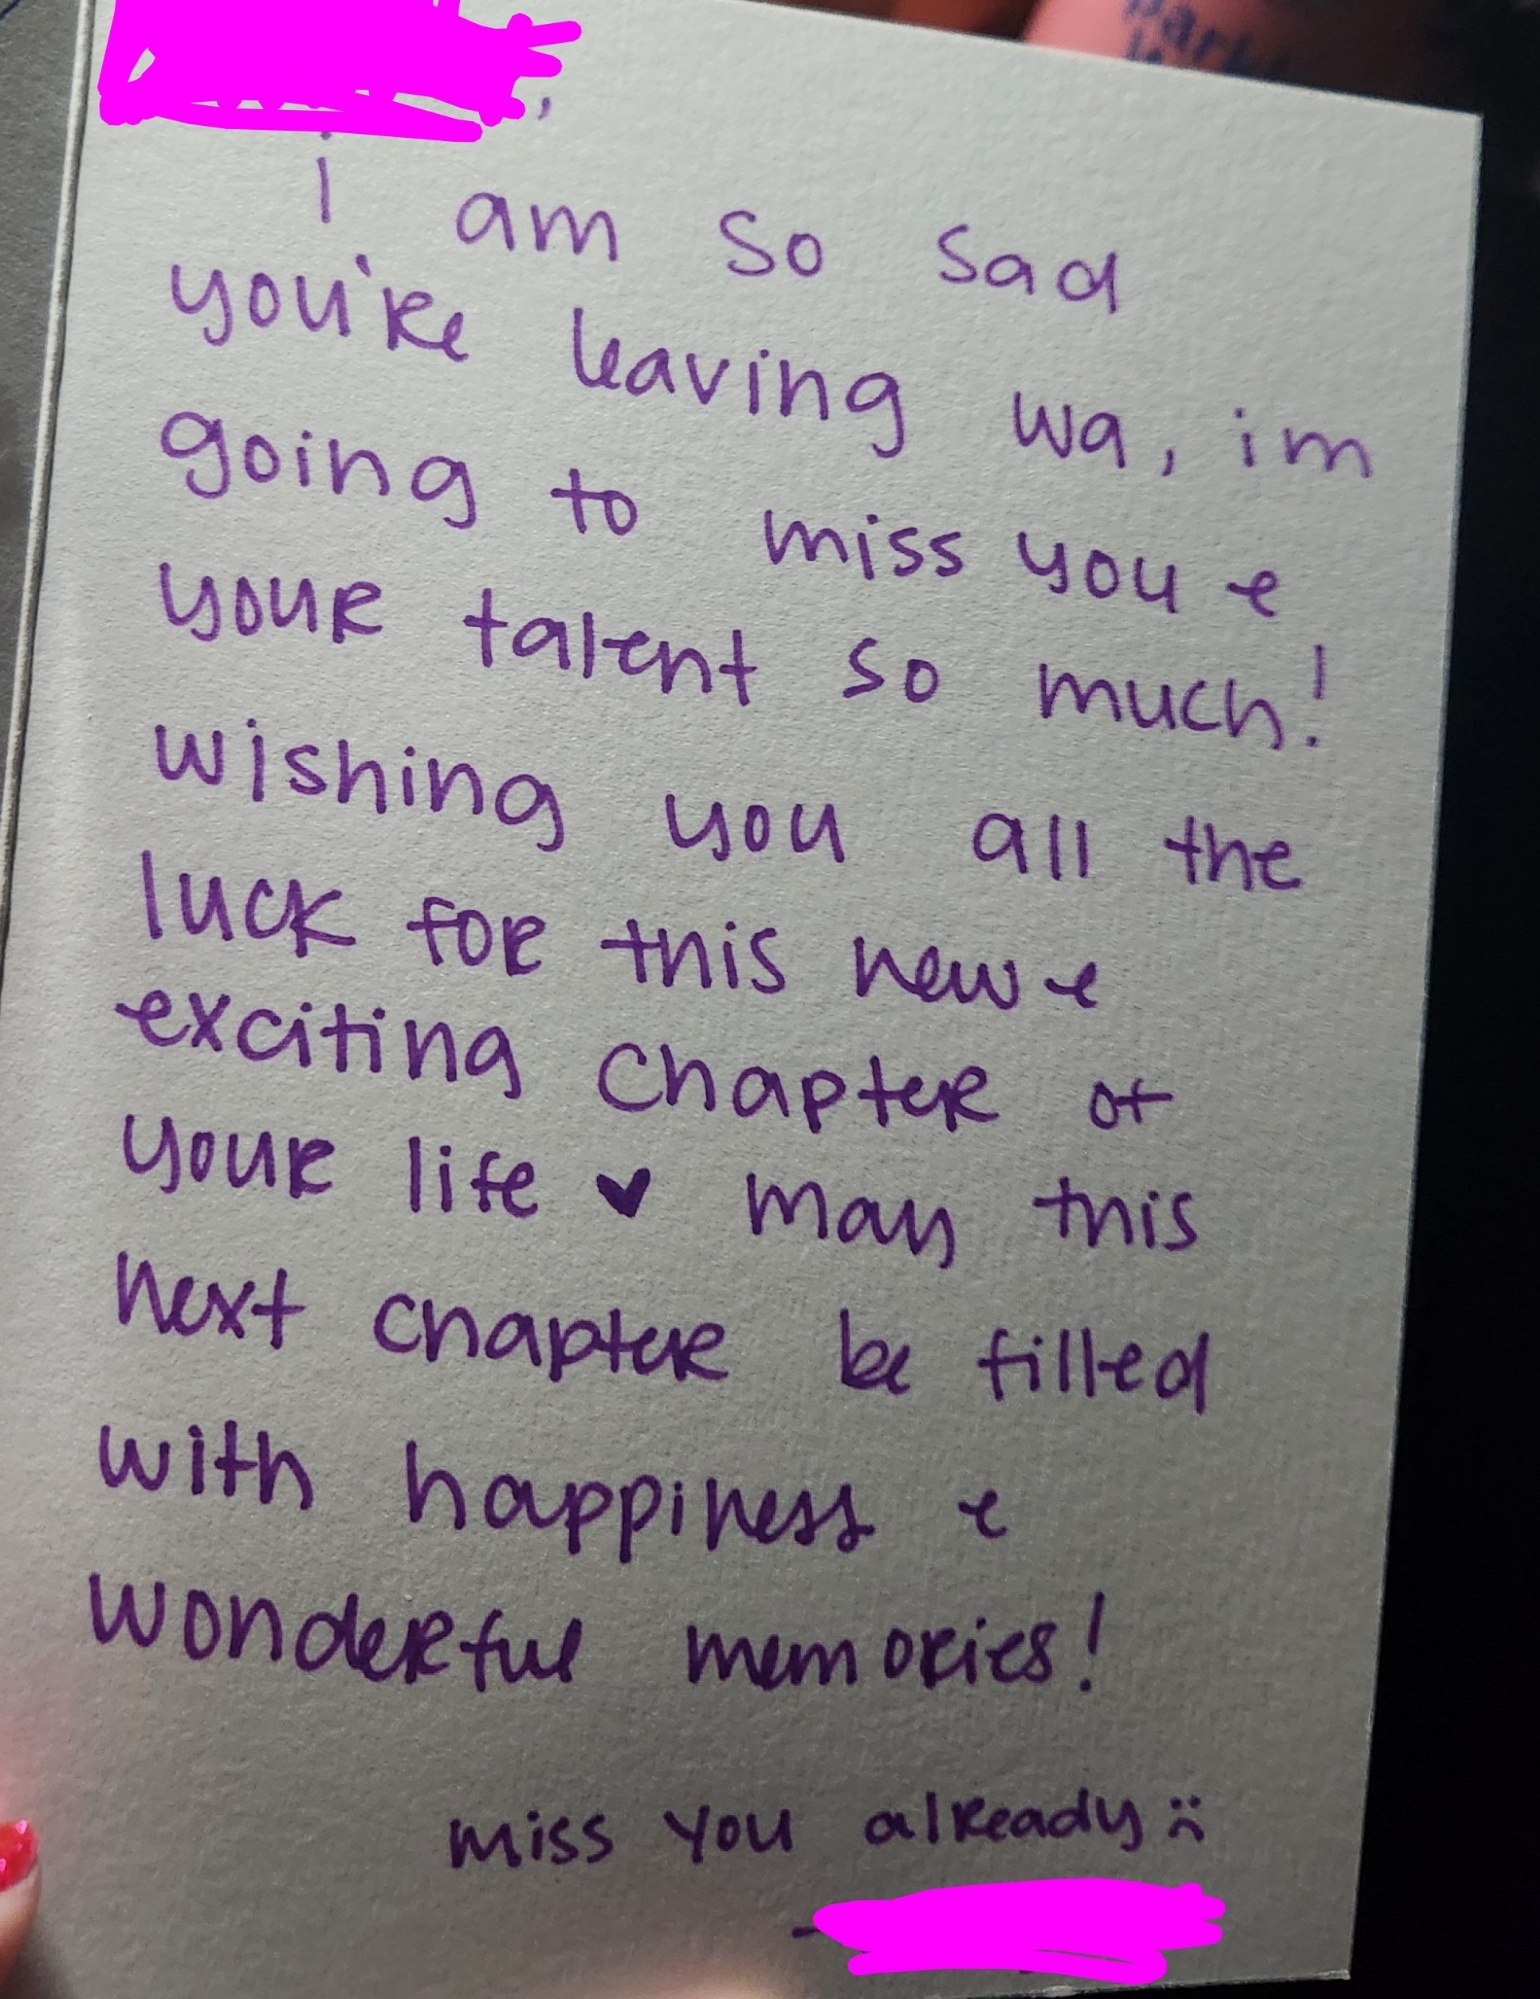 ,
i am so sad
you're leaving wa, im
going to miss you e
your talent so much!
wishing you all the
luck for this new e
exciting chapter of
your life ♥ may this
next chapter be filled
with happiness e
wonderful memories!
miss you already :(
-